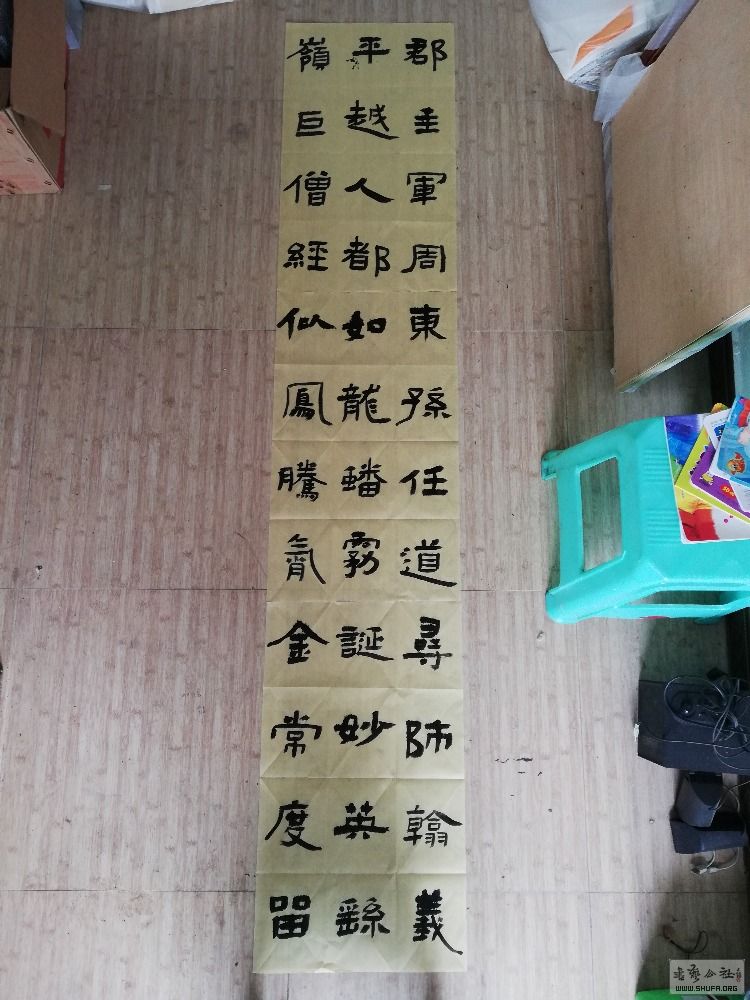 郡主軍周東孫任道尋師翰義
平越人都如龍蟠霧誕妙英繇
嶺巨僧經似鳳騰氣金常度留
WWW.SHUFA.ORG